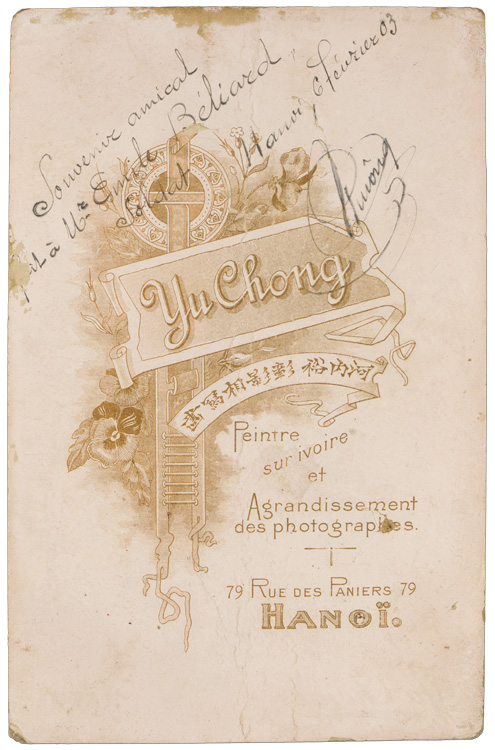 Souvenir amical
fait à Mr Emile Béliard
Soldat
Hanoi 6 février 03
Yu Chong
河內裕彰影相寫齒
Peintre
sur ivoire
et
Agrandissement
des photographies.
79 RUE DES PANIERS 79
HANOÏ.